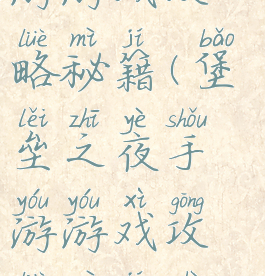 lüè mì jí bǎo
略秘籍(堡
lěi zhī yè shǒu
垒之夜手
yóu yóu xì gōng
游游戏攻